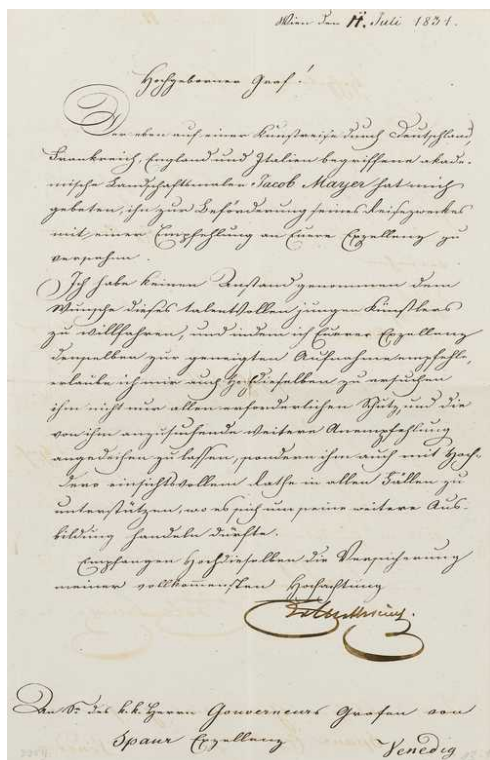 Wien den 11. Juli 1831.
Hochgeborner Graf!
Der eben auf einer Kunstreise durch Deutschland,
Frankreich, England und Italien begriffene akade-
mische Landschaftsmaler Jacob Mayer hat mich
gebeten, ihn zur Beförderung seines Reisezweckes
mit einer Empfehlung an Euere Exzellenz zu
versehen.
Ich habe keinen Anstand genommen dem
Wunsche dieses talentvollen jungen Künstlers
zu willfahren, und indem ich Euerer Exzellenz
denselben zur geneigten Aufnahme empfehle,
erlaube ich mir auch Hochdieselben zu ersuchen
ihm nicht nur allen erforderlichen Schutz, und die
von ihm anzusuchende weitere Anempfehlung
angedeihen zu lassen, sondern ihm auch mit Hoch-
dero einsichtsvollem Rathe in allen Fällen zu
unterstützen, wo es sich um seine weitere Aus-
bildung handeln dürfte.
Empfangen Hochdieselben die Versicherung
meiner vollkommensten Hochachtung
An Sr des k.k. Herrn Gouverneurs Grafen von
Spaur Exzellenz
Venedig